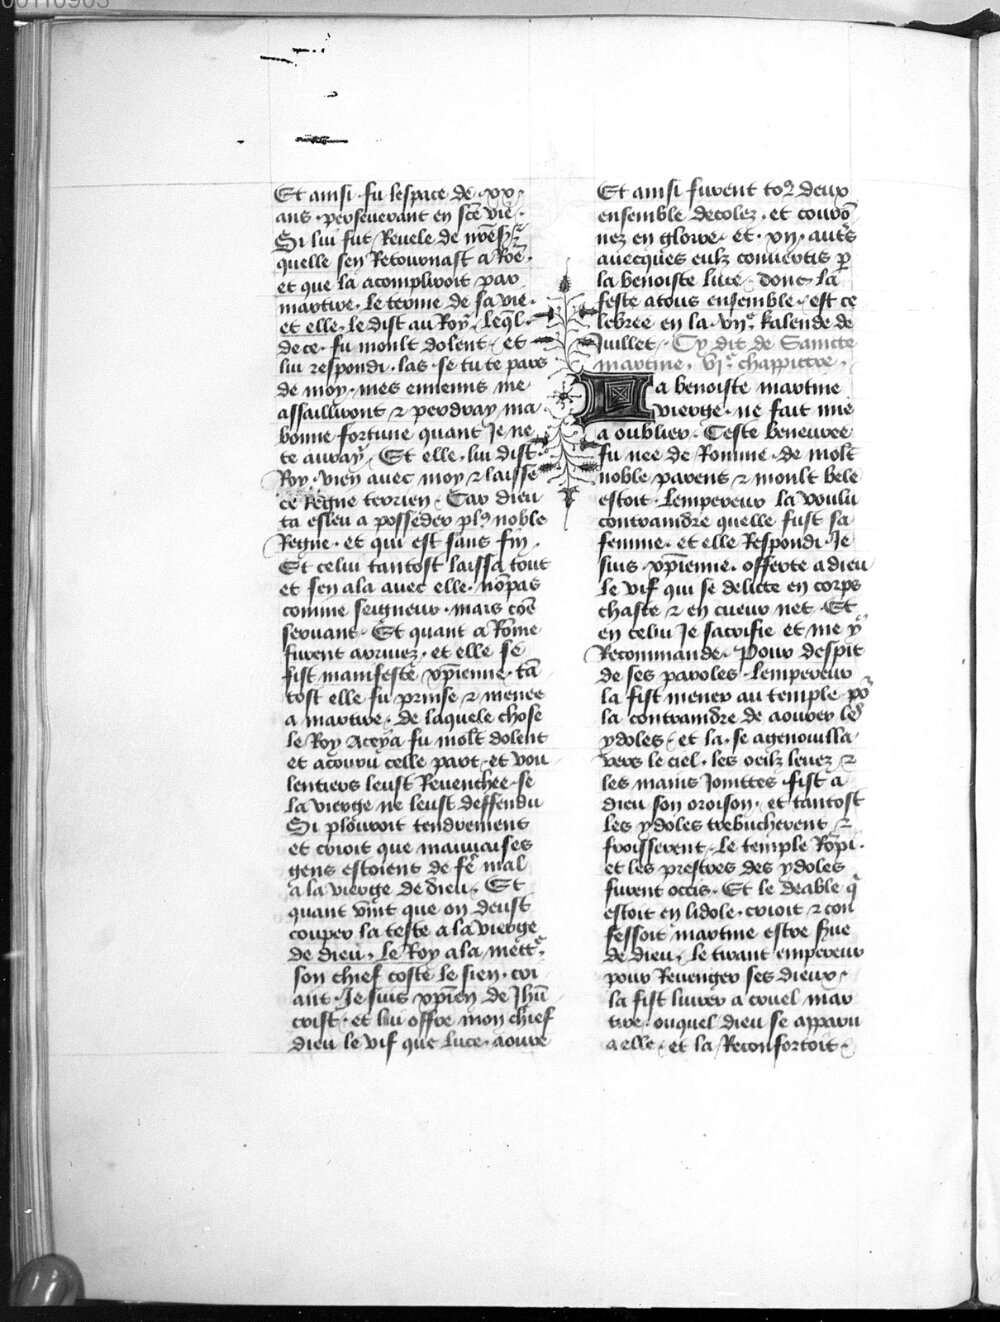 Et ainsi · fu lespace de · xx ·
ans · perseuerant en scẽ vie ·
Si lui fut Reuele de
quelle sen Retournast a Rõe ·
et que la acompliroit par
martire · le terme de sa vie ·
et elle · le dist au Roy · Leq̃l ·
de ce · fu moult dolent · et
lui respondi · las · se tu te pars
de moy · mes ennemis me
assailliront ⁊ perdray ma
bonne fortune quant Je ne
te auray · Et elle · lui dist ·
Roy · vien auec moy ⁊ laisse
ce Regne terrien · Car dieu
ta esleu a posseder plꝰ noble
Regne · et qui est sans fin ·
Et celui tantost laissa tout
et sen ala auec elle · nõpas
comme seigneur · mais cõe
seruant · Et quant a Rõme
furent arriuez · et elle se
fist manifeste xp̃ienne · tã
tost elle fu prinse ⁊ menee
a martire · de laquele chose
le Roy Aceya fu molt dolent
et acouru celle part · et vou
lentiers leust Reuenchee · se
la vierge ne leust deffendu
Si plouroit tendrement
et crioit que mauuaises
gens estoient de fẽ mal
a la vierge de dieu · Et
quant vint que on deust
couper la teste a la vierge
de dieu · Le Roy ala mettᵉ
son chief coste le sien · cri
ant · Je suis xp̃ien de Jhũ
crist · et lui offre mon chief
dieu le vif que luce · aoure
Et ainsi furent toꝰ deux
ensemble decolez · et courõ
nez en gloire · et · xxij · autẽs
auecques eulx conuertis p̱
la benoiste luce · donc la
feste a tous ensemble · est ce
lebree en la · vijᵉ · kalende de
Juillet · Cy dit de Saincte
martine · vjᵉ chappittre ·
La benoiste martine
vierge · ne fait mie
a oublier · Ceste beneuree
fu nee de Romme · de molt
noble parens ⁊ moult bele
estoit · Lempereur la voulu
contraindre quelle fust sa
femme · et elle Respondi · Je
suis · xp̃ienne · offerte a dieu
le vif qui se delicte en corps
chaste ⁊ en cueur net · Et
en celui Je sacrifie et me y
Recommande · Pour despit
de ses paroles · lempereur
la fist mener au temple põ
la contraindre de aourer les
ydoles · et la · se agenouilla
vers le ciel · les oeilz leuez ⁊
les mains Jointtes · fist a
dieu son oroison · et tantost
les ydoles trebucherent ⁊
froisserent · Le temple Rõpi ·
et les prestres des ydoles
furent occis · Et le deable q̃
estoit en lidole · crioit ⁊ con
fessoit martine estre s̃ue
de dieu · Le tirant empereur
pour Reuenger ses dieux ·
la fist liurer a cruel mar
tire · ouquel dieu se apparu
a elle · et la Reconfortoit ·